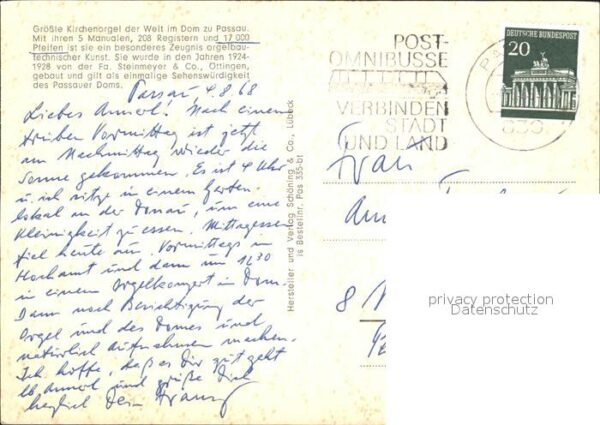 Größte Kirchenorgel der Welt im Dom zu Passau.
Mit ihren 5 Manualen, 208 Registern und 17 000
Pfeifen ist sie ein besonderes Zeugnis orgelbau-
technischer Kunst. Sie wurde in den Jahren 1924-
1928 von der Fa. Steinmeyer & Co., Öttingen,
gebaut und gilt als einmalige Sehenswürdigkeit
des Passauer Doms.
Passau 4.8.68
Liebes Annerl! Nach einem
trüben Vormittag ist jetzt
am Nachmittag wieder die
Sonne gekommen. Es ist 4 Uhr
u. ich sitze in einem Garten-
lokal an der Donau, um eine
Kleinigkeit zu essen. Mittagessen
fiel heute aus. Vormittags im
Hochamt und dann um 1130
in einem Orgelkonzert im Dom.
Dann noch Besichtigung der
Orgel und des Domes und
natürlich Aufnahmen machen.
Ich hoffe, daß es Dir gut geht
lb Annerl und grüße Dich
herzlich Dein Franz
Hersteller und Verlag Schöning & Co., Lübeck
is Bestellnr. Pas 335-bt
POST-
OMNIBUSSE
VERBINDEN
STADT
UND LAND
PA
839
DEUTSCHE BUNDESPOST
20
Frau
8
privacy protection
Datenschutz